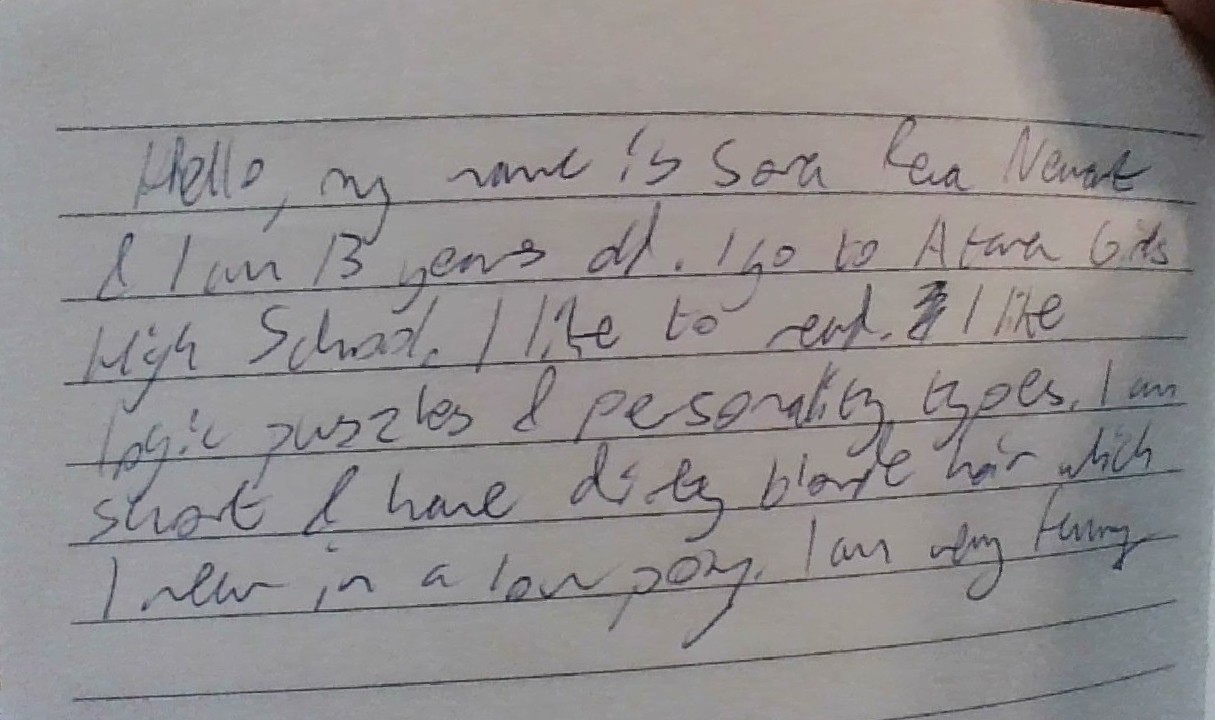 Hello, my name is Sara Rea
& I am 13 years old. I go to Atara Girls
High School. I like to read. I like
logic puzzles & personality types. I am
short & have dirty blonde hair which
I wear in a low pony. I am very funny